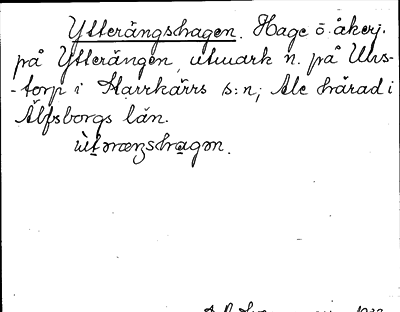 Ytterängshagen. Hage ö. åkerj.
på Ytterängen, utmark n. på Uvs-
-torp i Starrkärrs s:n; Ale härad i
Älfsborgs län.